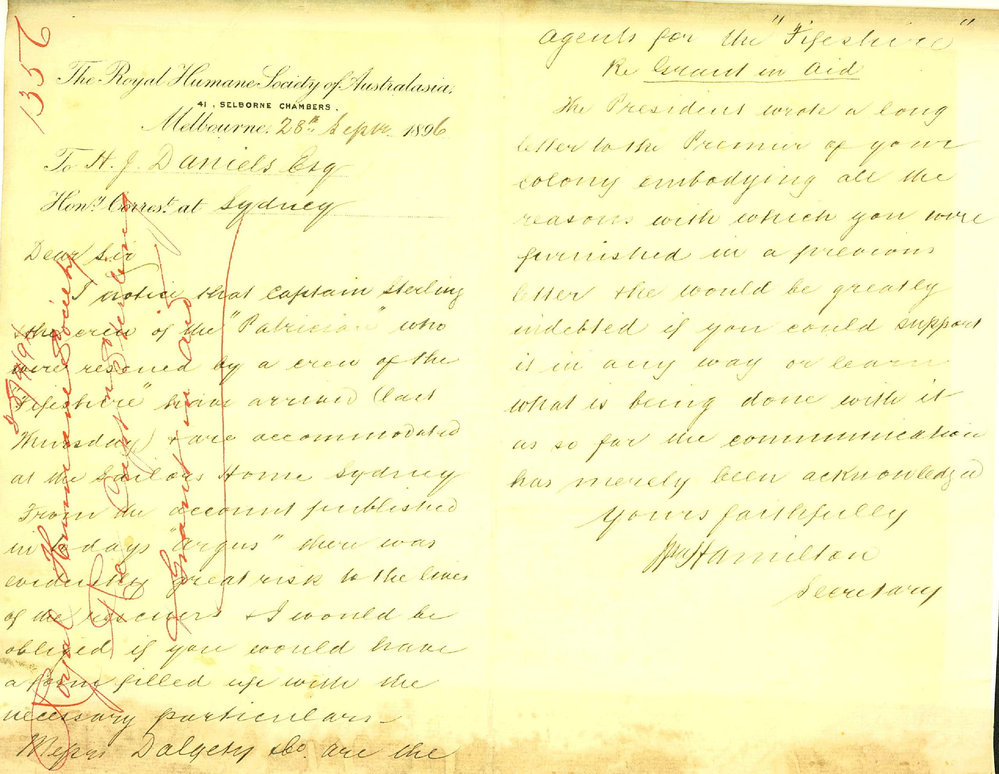 1356
The Royal Humane Society of Australasia,
41, SELBORNE CHAMBERS.
Melbourne, 28th Septr. 1896
To H. J. Daniels Esq
Hony. Correst. at Sydney
Dear Sir
I notice that Captain Sterling
& the crew of the "Patrician" who
were rescued by a crew of the
"Fifeshire" have arrived (last
Thursday) & are accommodated
at the Sailors Home Sydney
From the account published
in todays "Argus" there was
evidently great risk to the lives
of the rescuers & I would be
obliged if you would have
a form filled up with the
necessary particulars –
Messrs Dalgety & Co. are the
Royal Humane Society
Re Captn Sterling
& Grant in aid
agents for the "Fifeshire"
Re Grant in Aid
The President wrote a long
letter to the Premier of your
colony embodying all the
reasons with which you were
furnished in a previous
letter & he would be greatly
indebted if you could support
it in any way or learn
what is being done with it
as so far the communication
has merely been acknowledged
Yours faithfully
Hamilton
Secretary